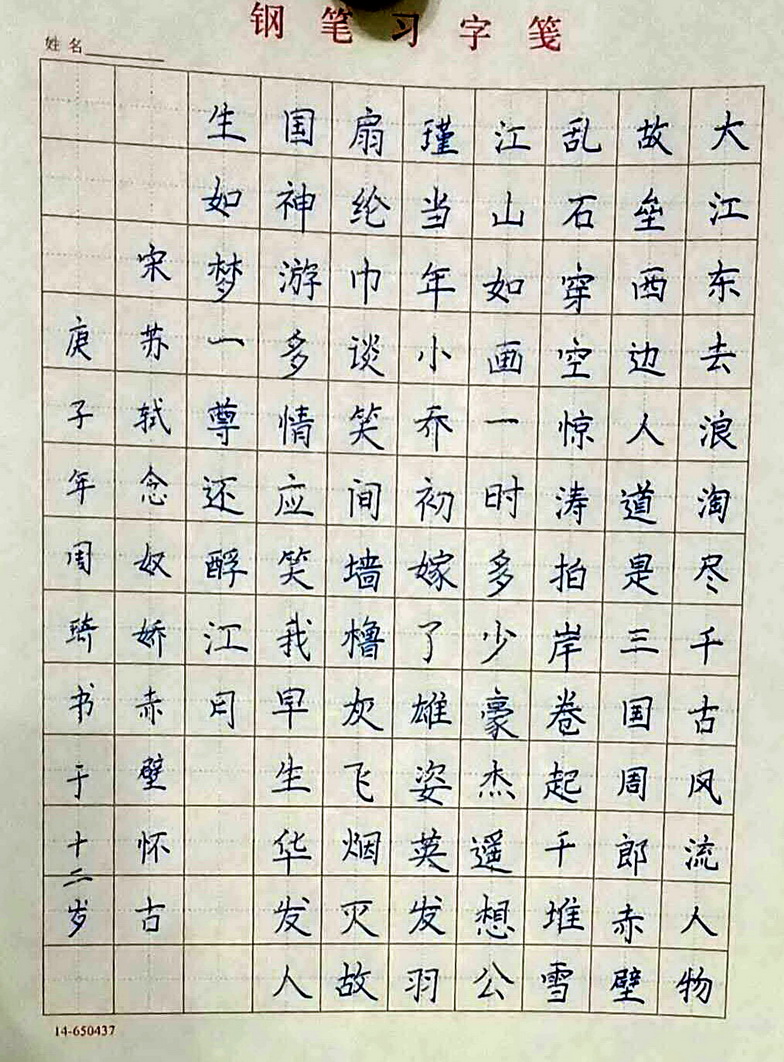 钢笔习字笺
姓名
大江东去浪淘尽千古风流人物
故垒西边人道是三国周郎赤壁
乱石穿空惊涛拍岸卷起千堆雪
江山如画一时多少豪杰遥想公
瑾当年小乔初嫁了雄姿英发羽
扇纶巾谈笑间墙橹灰飞烟灭故
国神游多情应笑我早生华发人
生如梦一尊还酹江月
宋苏轼念奴娇赤壁怀古
庚子年周琦书于十二岁
14-650437